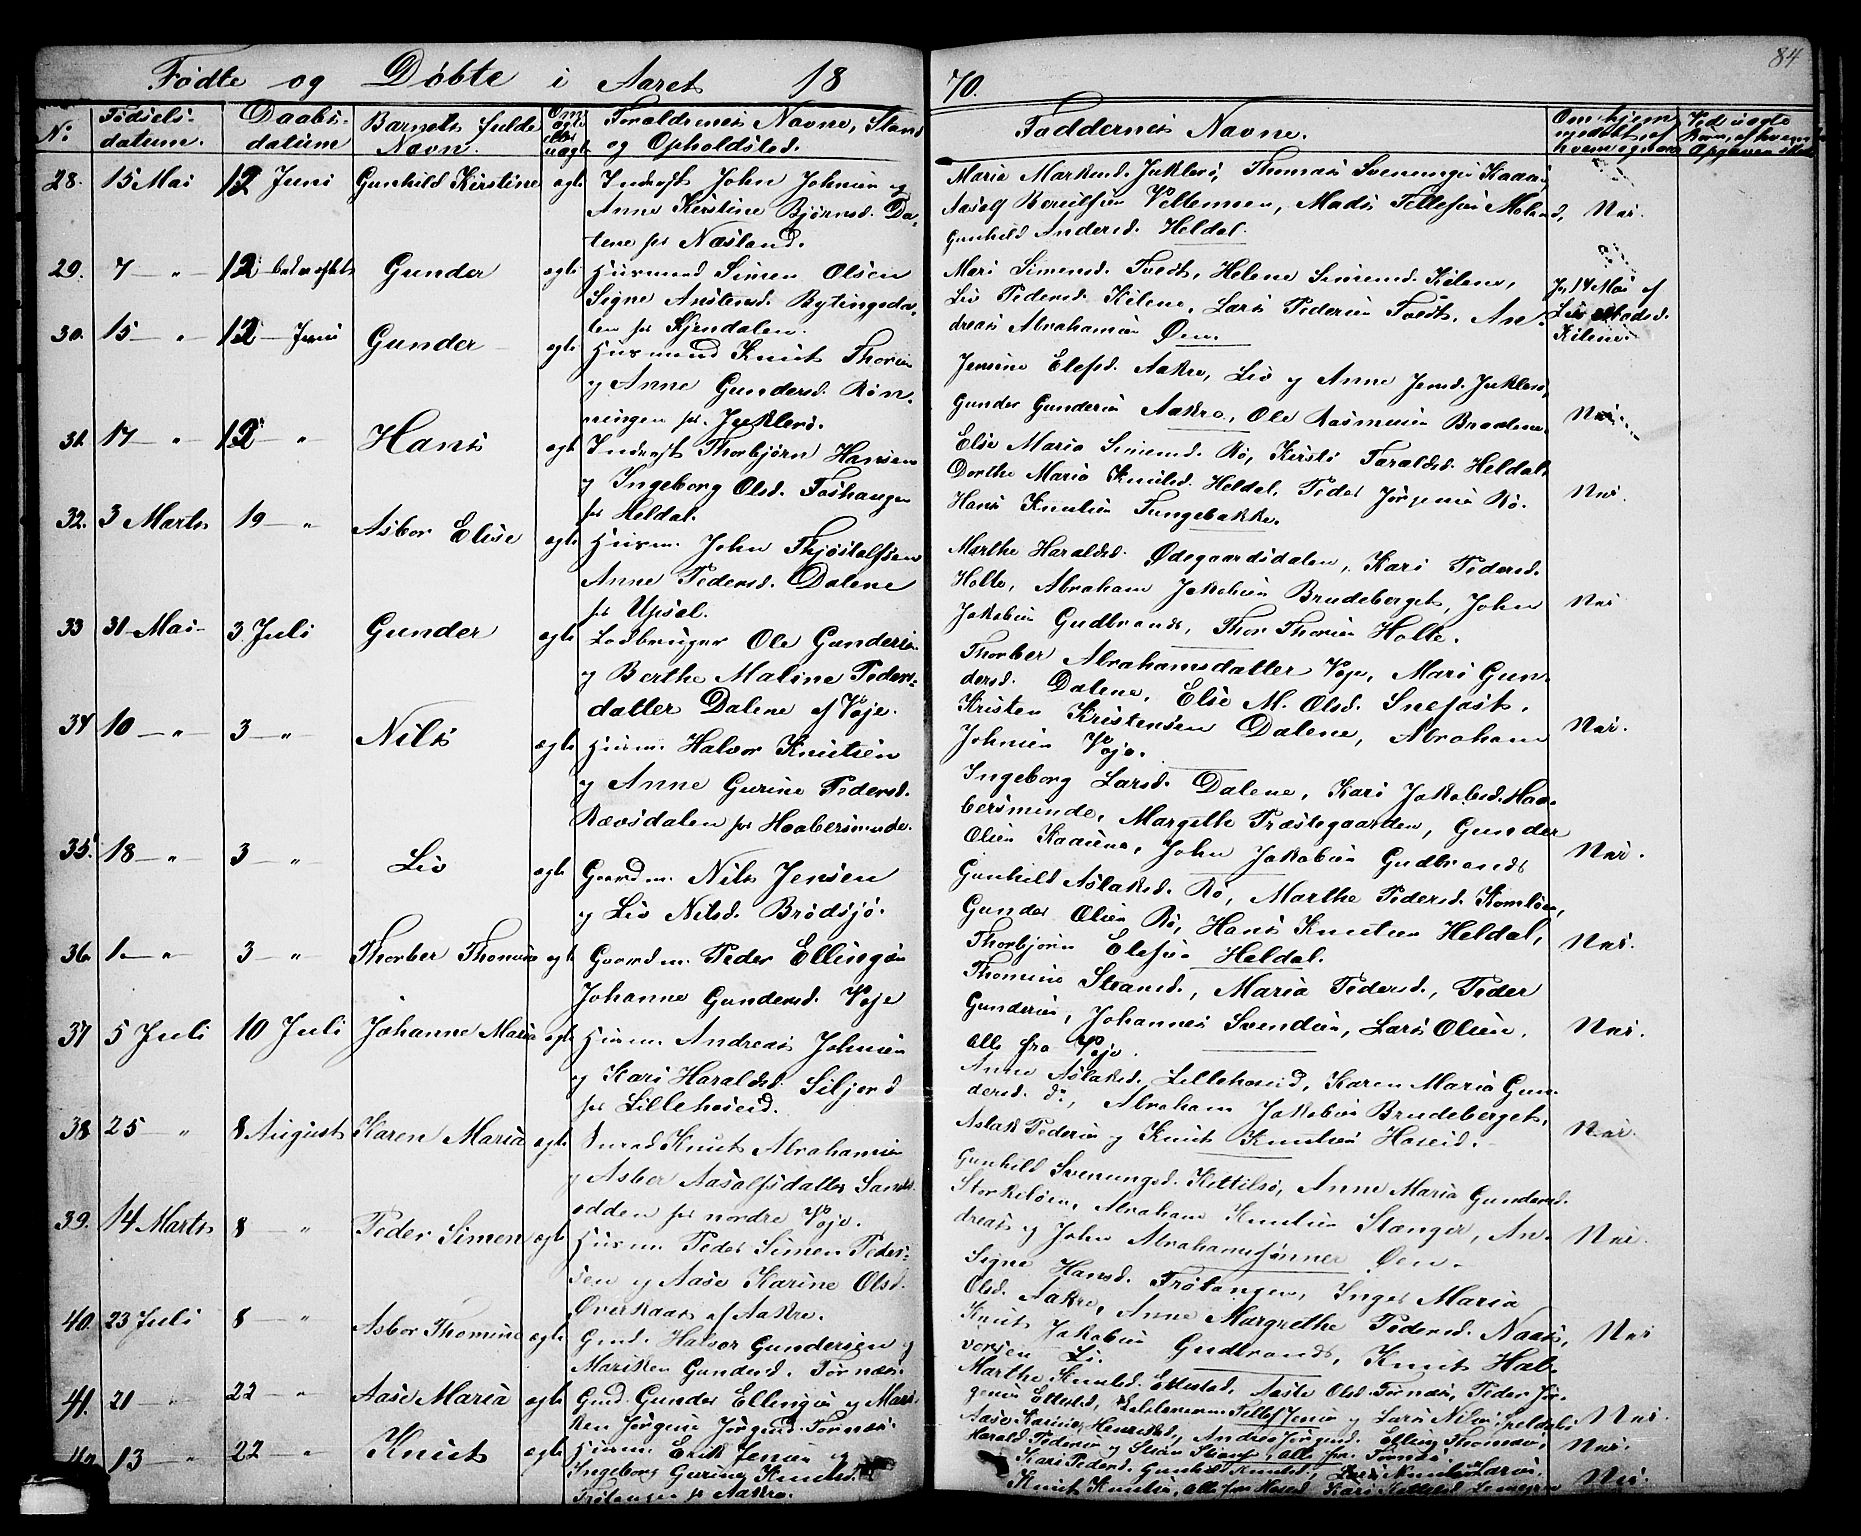 84
Fødte og Døbte i Aaret 18 70.
No: Fødsels- datum. Daabs- datum Barnets fulde Navn. Om ægte eller uægte Forældrenes Navne, Stand og Opholdsted. Faddernes Navne.
28. 15 Mai 12 Juni Gunhild Kirstine ægte Inderst John Johnsen og
Anne Kirstine Bjørnsd. Da-
lene for Næsland.
Aasolf
Gunhild Andersd. Heldal.
Nei.
29. 7 — " 12 — Gunder ægte Husmand Simen Olsen
Signe Anstensd. Rytingsda-
len for Kjendalen.
Mari Simensd. Tvedt, Helene Simensd. Kilene,
Liv Pedersd. Kilene, Lars Pedersen Tvedt, An-
dreas Abrahamsen Øen.
Ja 14 Mai af
Liv Madsd.
Kilene.
30. 15 — " 12 — Juni Gunder ægte Husmand Knut Thorsen
og Anne Gundersd. Røn-
ningen for Juklerø.
Jensine Elefsd. Aakre, Liv og Anne Jensd. Juklerø,
Gunder Gundersen Aakre, Ole Rasmusen Braadene.
Nei
31. 17 — " 12 — " Hans ægte Inderst Thorbjørn Hansen
og Ingeborg Olsd. Foshaugen
for Heldal.
Else Maria Simensd. Rø, Kirsti Taraldsd. Heldal,
Dorthe Maria Knutsd. Heldal, Peder Jørgensen Rø.
Hans Knutsen Tungebakke.
Nei.
32. 3 Marts 19 — " Asbor Elise ægte Husm. John Thjostolfsen
Anne Pedersd. Dalene
for Upsal.
Marthe Haraldsd. Ødegaardsdalen, Kari Pedersd.
Holte, Abraham Jakobsen Brudeberget, John
Jakobsen Gudbrands, Thor Thorsen Holte.
Nei
33 31 Mai 3 Juli Gunder ægte Lodbruger Ole Gundersen
og Berthe Maline Peders-
datter Dalene af Vøje.
Thorber Abrahamsdatter Vøje, Mari Gun-
dersd. Dalene, Else M. Olsd. Snefost.
Kristen Kristensen Dalene, Abraham
Johnsen Vøje.
Nei.
34 10 — " 3 — " Nils ægte Husm. Halvor Knutsen
og Anne Gurine Pedersd.
Rævsdalen for Haabersminde.
Ingeborg Larsd. Dalene, Kari Jakobsd. Haa-
bersminde, Margethe Præstegaarden, Gunder
Olsen Kaasene, John Jakobsen Gudbrands
Nei.
35. 18 — " 3 — " Liv ægte Gaardm. Nils Jensen
og Liv Nilsd. Brødsjø.
Gunhild Aslaksd. Rø, Marthe Pedersd.
Gunder Olsen Rø, Hans Knutsen Heldal,
Thorbjørn Elefsen Heldal.
Nei.
36. 1 — " 3 — " Thorber Thomine ægte Gaardm. Peder Ellingsen
Johanne Gundersd. Vøje
Thomine Strand, Maria Pedersd., Peder
Gundersen, Johannes Svendsen, Lars Olsen,
alle fra Vøje.
Nei.
37 5 Juli 10 Juli Johanne Maria ægte Husm. Andreas Johnsen
og Kari Haraldsd. Siljord
for Lillehoseid.
Anne Aslaksd. Lillehoseid, Karen Maria Gun-
dersd. do, Abraham Jakobsen Brudeberget,
Aslak Pedersen og Knut Knutsen Hoseid.
Nei.
38. 25 — " 8 August Karen Maria ægte Knut Abrahamsen
og Asber Aasolfsdatter Sand-
odden for nordre Vøje.
Gunhild Svenungsd. Kittilsø, Anne Maria Gundersd.
Abraham Knutsen Stanger, An-
dreas og John Abrahamsønner Øen.
Nei.
39. 14 Marts 8 — " Peder Simen ægte Husm. Peder Simen Peder-
sen og Aase Karine Olsd.
Øverkaas af Aakre.
Signe Hansd. Frølangen, Inger Maria
Olsd. Aakre, Anne Margrethe Pedersd. Naas,
Knut Jakobsen Gudbrands, Knut Hal-
vorsen Li.
Nei
40. 23 Juli 8 — " Asbor Thomine ægte Gmd. Halvor Gundersen og
Mariken Gundersd. Tørnæs.
Marthe Knutsd. Ettestad, Aaste Olsd. Tørnæs, Peder Jør-
gensen Ettestad,
Nei.
41. 21 — " 22 — " Aase Maria ægte Gmd. Gunder Ellingsen og Mari-
ken Jørgine Jørgensd. Tørnæs.
Aase Karine Henriksd., Andrea Jørgensd. Elling Thomasen,
Harald Pedersen alle fra Tørnæs
Nei.
42. 13 — " 22 — " Knut ægte Husm. Erik Jensen og
Ingeborg Gurine Knutsd.
Frølangen for Aakre.
Kari Pedersd. Gunhild Knutsd.,
Knut Knutsen, alle fra Hoseid,
Nei.